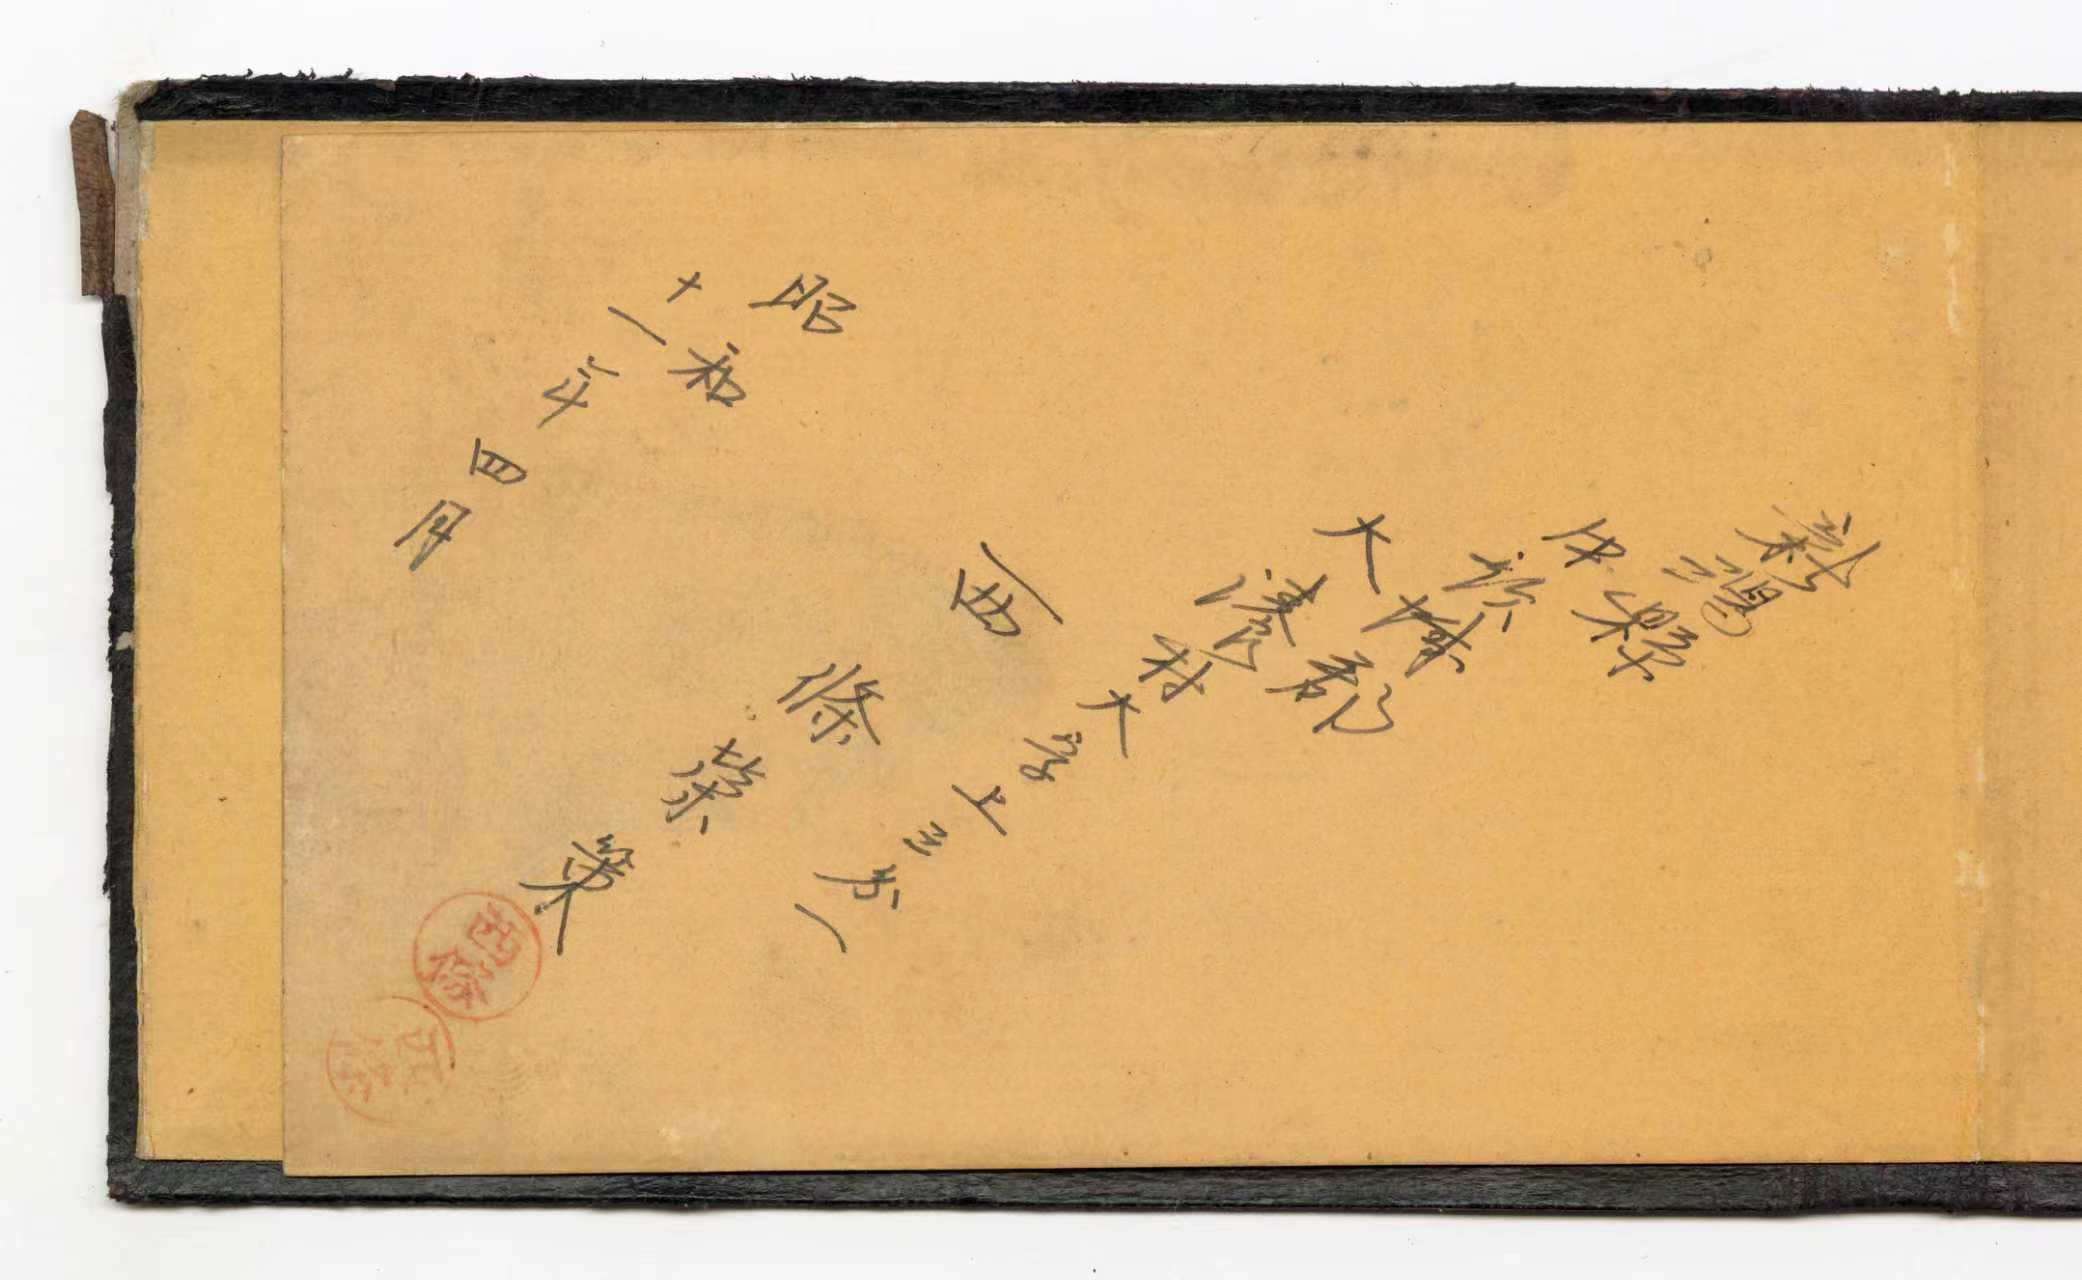 新潟縣
中頸城郡
大瀁村大字上三分一
西條榮策
昭和
十一年四月
西條
西條